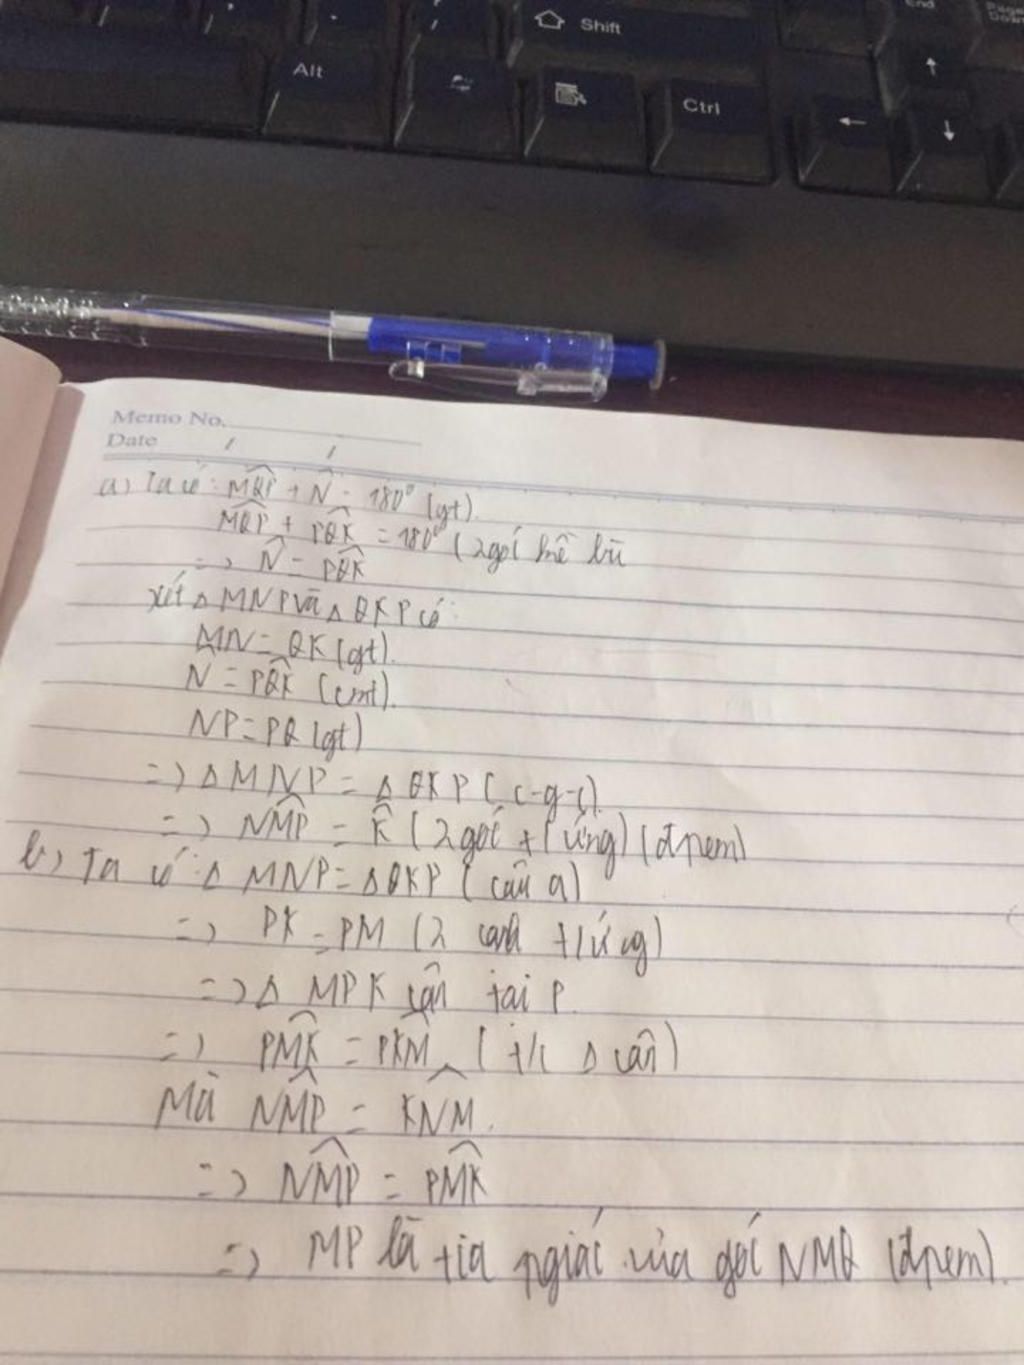 End
Page Down
Shift
Alt
Ctrl
Memo No.
Date / /
a) Ta có: MQP̂ + N̂ = 180° (gt).
MQP̂ + PQK̂ = 180° (2 góc kề bù
=> N̂ = PQK̂
xét Δ MNP và Δ QKP có:
MN = QK (gt).
N̂ = PQK̂ (cmt).
NP = PQ (gt)
=> Δ MNP = Δ QKP (c-g-c).
=> NMP̂ = K̂ (2 góc t/ứng) (đpcm)
b) Ta có: Δ MNP = Δ QKP (câu a)
=> PK = PM (2 cạnh t/ứng)
=> Δ MPK cân tại P.
=> PMK̂ = PKM̂ (t/c Δ cân)
Mà NMP̂ = KNM̂.
=> NMP̂ = PMK̂
=> MP là tia pgiác của góc NMQ (đpcm).